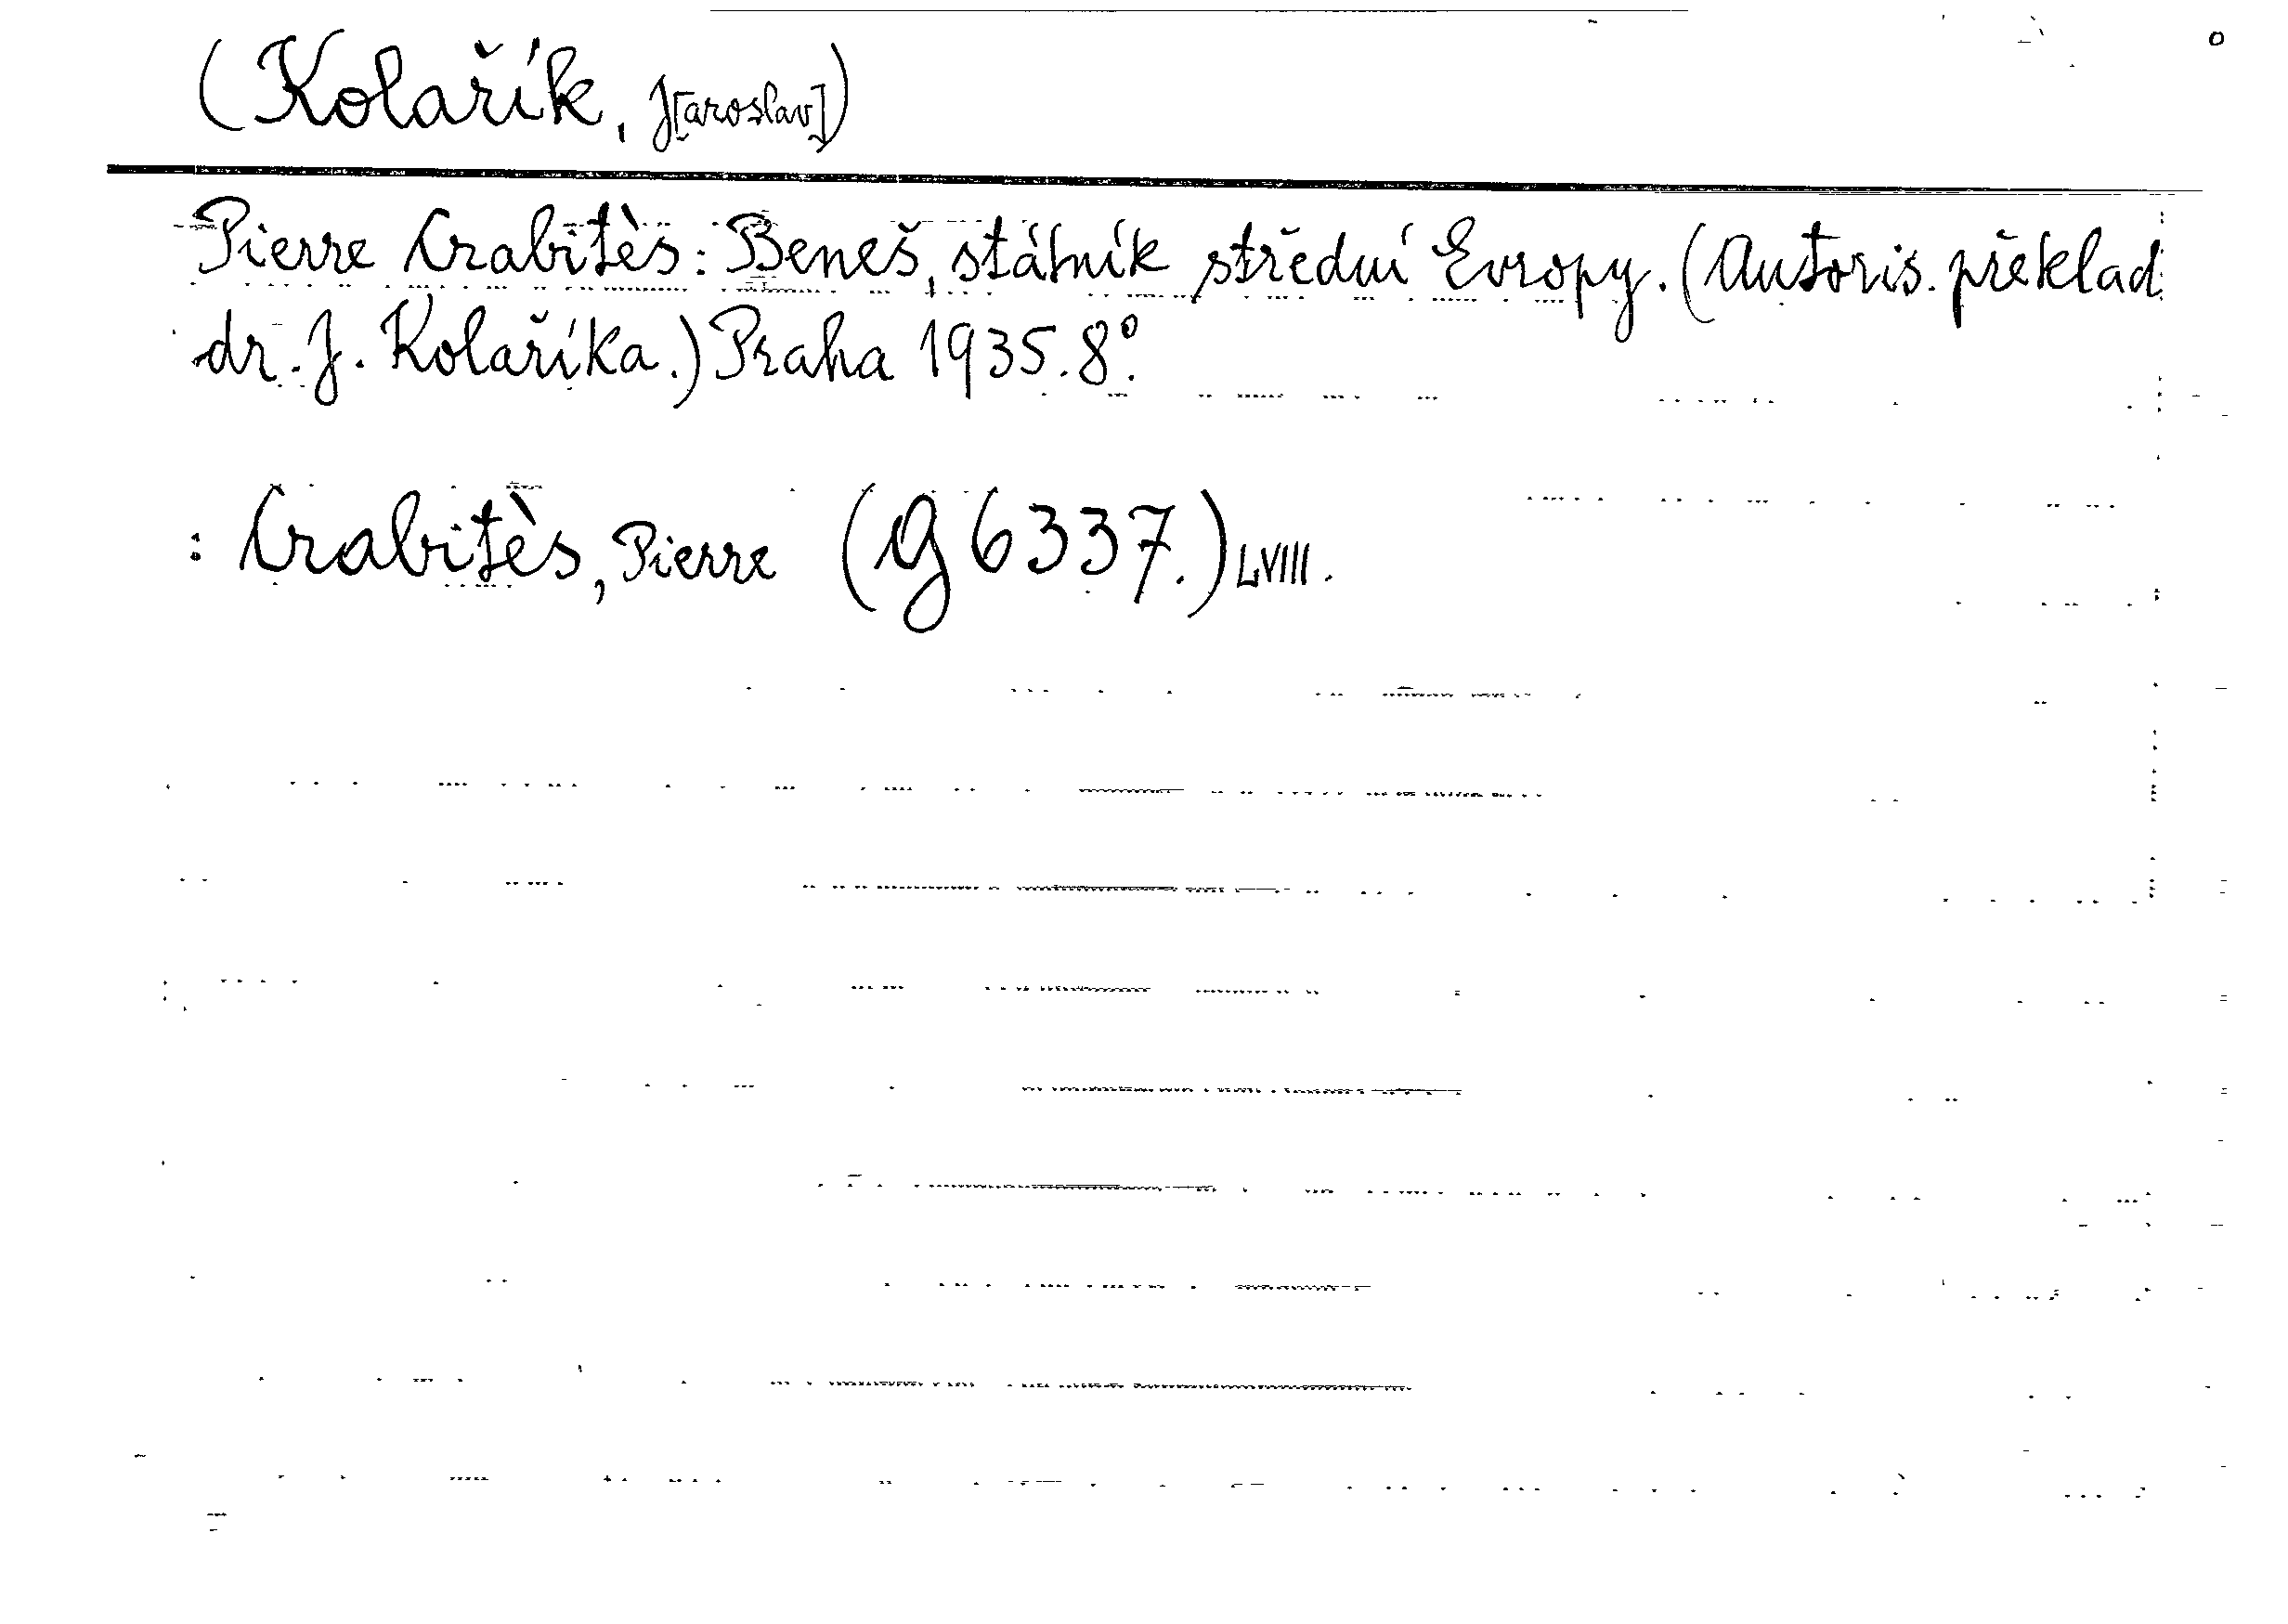 (Kolařík, J[aroslav])
Pierre Crabitès: Beneš, státník střední Evropy. (Autoris. překlad
dr. J. Kolaříka.) Praha 1935. 8°.
: Crabitès, Pierre (G 6337.) LVIII.